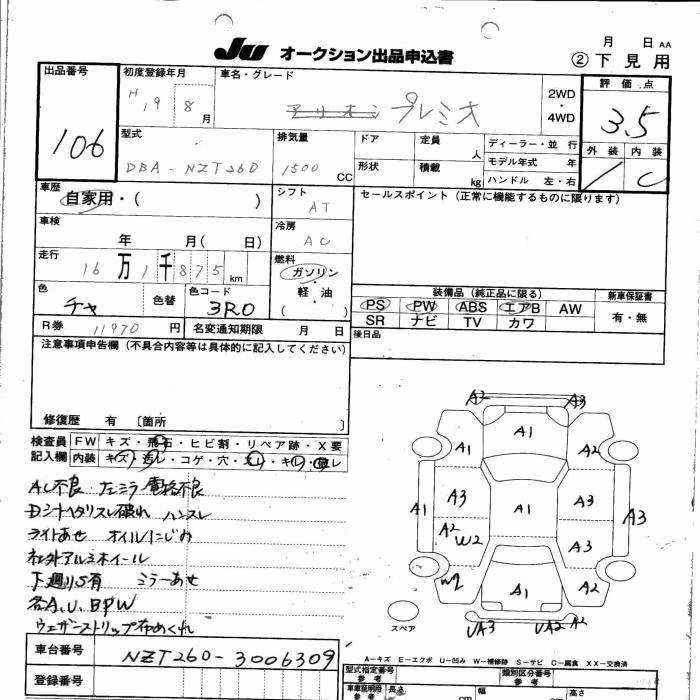 月 日 AA
JU オークション出品申込書
② 下見用
出品番号
106
初度登録年月
H, 9 8月
車名・グレード
アリオン プレミオ
2WD
・
4WD
評価点
3.5
外装 内装
/ C
型式
DBA-NZT260
排気量
1500 CC
ドア
形状
定員 人
積載 kg
ディーラー・並行
モデル年式 年
ハンドル 左・右
車歴
自家用・( )
シフト
AT
セールスポイント(正常に機能するものに限ります)
車検
年 月( 日)
冷房
AC
走行
16万1千875km
燃料
ガソリン
・
軽油
( )
色
チャ
色替
色コード
3R0
装備品(純正品に限る)
PS PW ABS エアB AW
SR ナビ TV カワ
新車保証書
有・無
R券 11970円
名変通知期限 月 日
後日品
注意事項申告欄(不具合内容等は具体的に記入してください)
修復歴 有 〔箇所 〕
検査員
記入欄
FW キズ・飛石・ヒビ割・リペア跡・X要
内装 キズ・汚レ・コゲ・穴・スレ・キレ
AC不良 電格不良
ハンスレ
ライトあせ オイルにじみ
社外アルミホイール
下廻りS有 ミラーあせ
各A,U,BPW
ウェザーストリップ布めくれ
A2 A3
A1
A1 A2
A1 A3 A1 A3 A3
A2 W2 A3
W2 A1 A2
スペア
UA3 UA2 A2
車台番号
NZT260-3006309
登録番号
A-キズ E-エクボ U-凹み W-補修跡 S-サビ C-腐食 XX-交換済
型式指定番号
類別区分番号
車庫証明用
参考
長さ
幅
高さ
cm